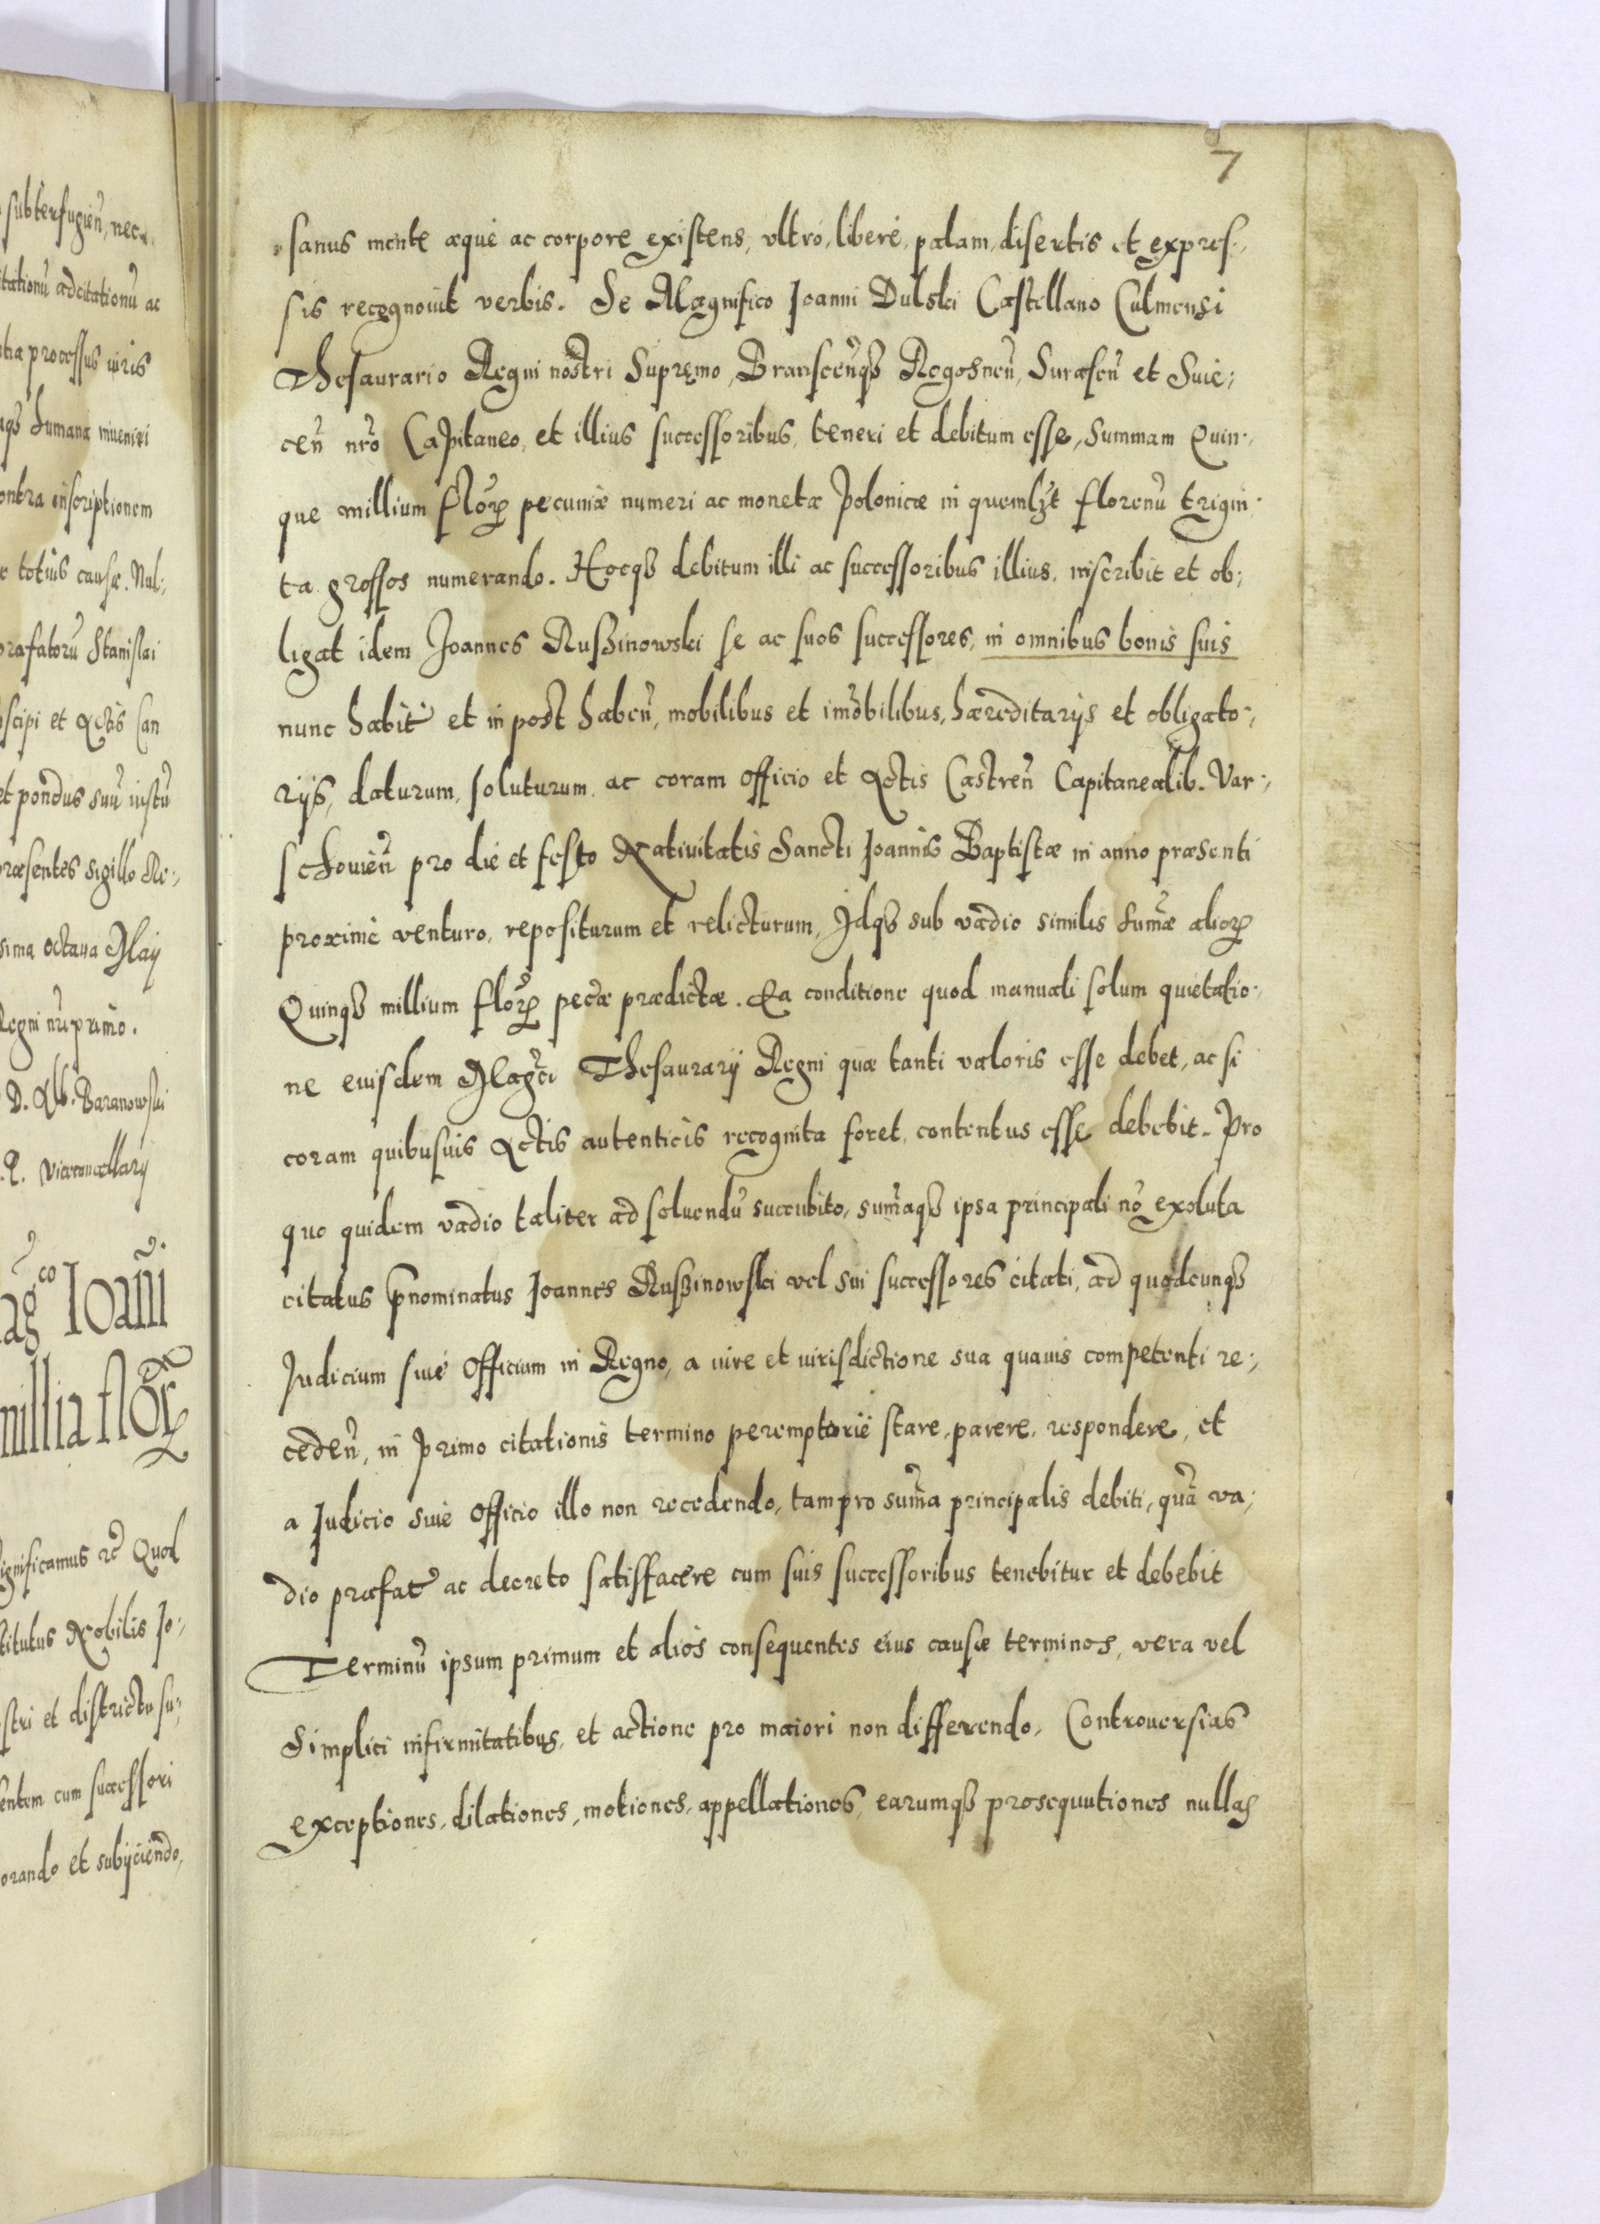 subterfugien̄, nec
itationū adcitationū ac
processus iuris
humana inueniri
contra inscriptionem
totius causæ. Nul:
præfatorū Stanislai
et Actis Can
et pondus suū iustū
præsentes sigillo Re:
octaua Maij
Regni nr̄i primo.
D. Alb. Baranowski
R. P. Vicecancellarij
Mag^co Ioan̄i
millia flor̄
significamus etc̄ Quod
Nobilis Jo:
nostri et districtu
cum successori
et subijciendo,
7
sanus mente æque ac corpore existens, vltro, libere, palam, disertis et expres:
sis recognouit verbis. Se Magnifico Joanni Dulski Castellano Culmensi
Thesaurario Regni nostri Supremo, Branscen̄qз Rogosnen̄, Surasen̄ et Suie:
cen̄ nr̄o Capitaneo, et illius successoribus, teneri et debitum esse, Summam Quin:
que millium flor̄ pecuniæ numeri ac monetæ Polonicæ in quemlꝫt florenū trigin:
ta grossos numerando. Hocqз debitum illi ac successoribus illius, inscribit et ob:
ligat idem Joannes Rusзinowski se ac suos successores, in omnibus bonis suis
nunc habit̄ et in post haben̄, mobilibus et im̄obilibus, hæreditarijs et obligato:
rijs, daturum, soluturum, ac coram Officio et Actis Castren̄ Capitanealib. Var:
schouien̄ pro die et festo Natiuitatis Sancti Joannis Baptistæ in anno præsenti
proxime venturo, repositurum et relicturum, Idqз sub vadio similis sum̄æ alior̄
Quinqз millium flor̄ pec̄æ prædictæ. Ea conditione quod manuali solum quietatio:
ne eiusdem Maḡci Thesaurarij Regni quæ tanti valoris esse debet, ac si
coram quibusuis Actis autenticis recognita foret, contentus esse debebit. Pro
quo quidem vadio taliter ad soluendū succubito, sum̄aqз ipsa principali nō exoluta
citatus p̄nominatus Joannes Rusзinowski vel sui successores citati, ad quodcunqз
Judicium siue Officium in Regno, a iure et iurisdictione sua quauis competenti re:
ceden̄, in primo citationis termino peremptorie stare, parere, respondere, et
a Judicio siue Officio illo non recedendo, tam pro sum̄a principalis debiti, quā va:
dio præfat̄ ac decreto satisfacere cum suis successoribus tenebitur et debebit
Terminū ipsum primum et alios consequentes eius causæ terminos, vera vel
simplici infirmitatibus, et actione pro maiori non differendo, Controuersias
exceptiones, dilationes, motiones, appellationes, earumqз prosequutiones nullas